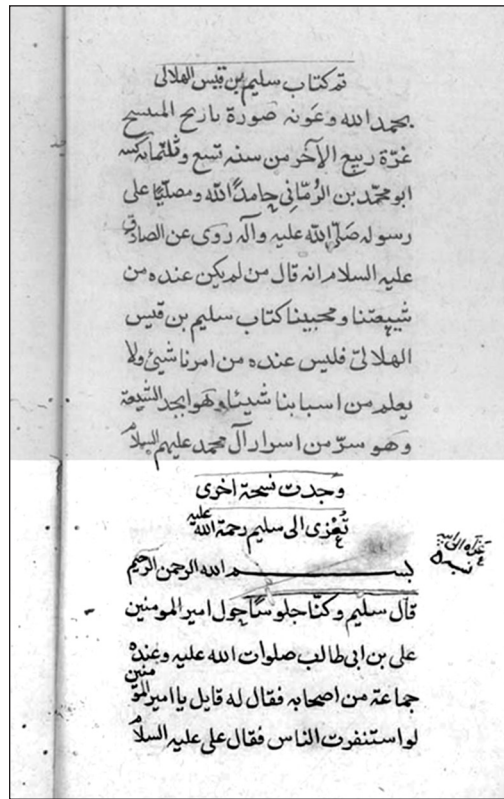 تم كتاب سليم بن قيس الهلالى
بحمد الله وعونه صورة تاريخ المنسخ
غرّة ربيع الآخر من سنه تسع وثلثمائه كتبه
ابو محمد بن الرُمّاني حامدًا لله ومصلّيًا على
رسوله صَلّى الله عليه وآله روى عن الصادق
عليه السلام انه قال من لم يكن عنده من
شيعتنا ومحبينا كتاب سليم بن قيس
الهلالىّ فليس عنده من امرنا شيئ ولا
يعلم من اسبابنا شيئا وهو ابجد الشيعة
وهو سرّ من اسرار آل محمد عليهم السلام
وجدت نسخة اخرى
تُعْزى الى سليم رحمة الله عليه
عزاه الى ابيه نسبه
بسم الله الرحمن الرحيم
قال سليم وكنّا جلوسًا حول امير المومنين
على بن ابى طالب صلوات الله عليه وعنده
جماعة من اصحابه فقال له قايل يا امير المومنين
لو استنفرت الناس فقال على عليه السلام